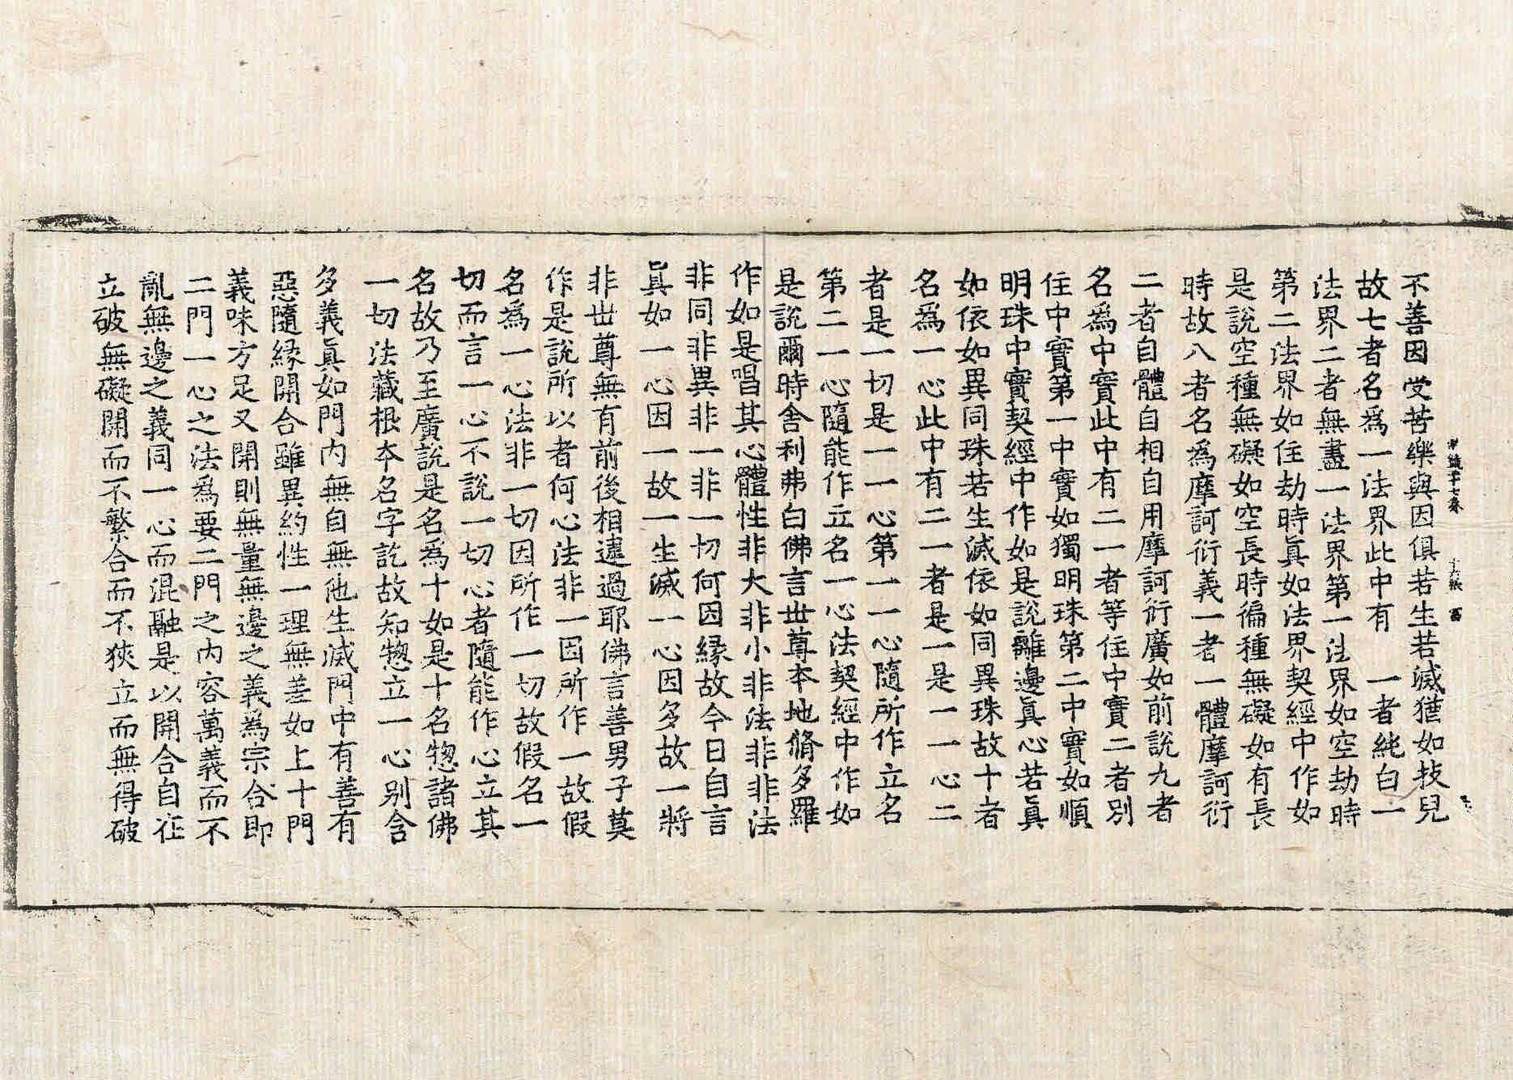 不善因受苦樂與因俱若生若滅猶如技兒
故七者名為一法界此中有　一者純白一
法界二者無盡一法界第一法界如空劫時
第二法界如住劫時真如法界契經中作如
是說空種無礙如空長時徧種無礙如有長
時故八者名為摩訶衍義一者一體摩訶衍
二者自體自相自用摩訶衍廣如前說九者
名為中實此中有二一者等住中實二者別
住中實第一中實如獨明珠第二中實如順
明珠中實契經中作如是說離邊真心若真
如依如異同珠若生滅依如同異珠故十者
名為一心此中有二一者是一是一一心二
者是一切是一一心第一一心隨所作立名
第二一心隨能作立名一心法契經中作如
是說爾時舍利弗白佛言世尊本地脩多羅
作如是唱其心體性非大非小非法非非法
非同非異非一非一切何因緣故今日自言
真如一心因一故一生滅一心因多故一將
非世尊無有前後相違過耶佛言善男子莫
作是說所以者何心法非一因所作一故假
名為一心法非一切因所作一切故假名一
切而言一心不說一切心者隨能作心立其
名故乃至廣說是名為十如是十名惣諸佛
一切法藏根本名字訖故知惣立一心別含
多義真如門內無自無他生滅門中有善有
惡隨緣開合雖異約性一理無差如上十門
義味方足又開則無量無邊之義為宗合即
二門一心之法為要二門之內容萬義而不
亂無邊之義同一心而混融是以開合自在
立破無礙開而不繁合而不狹立而無得破